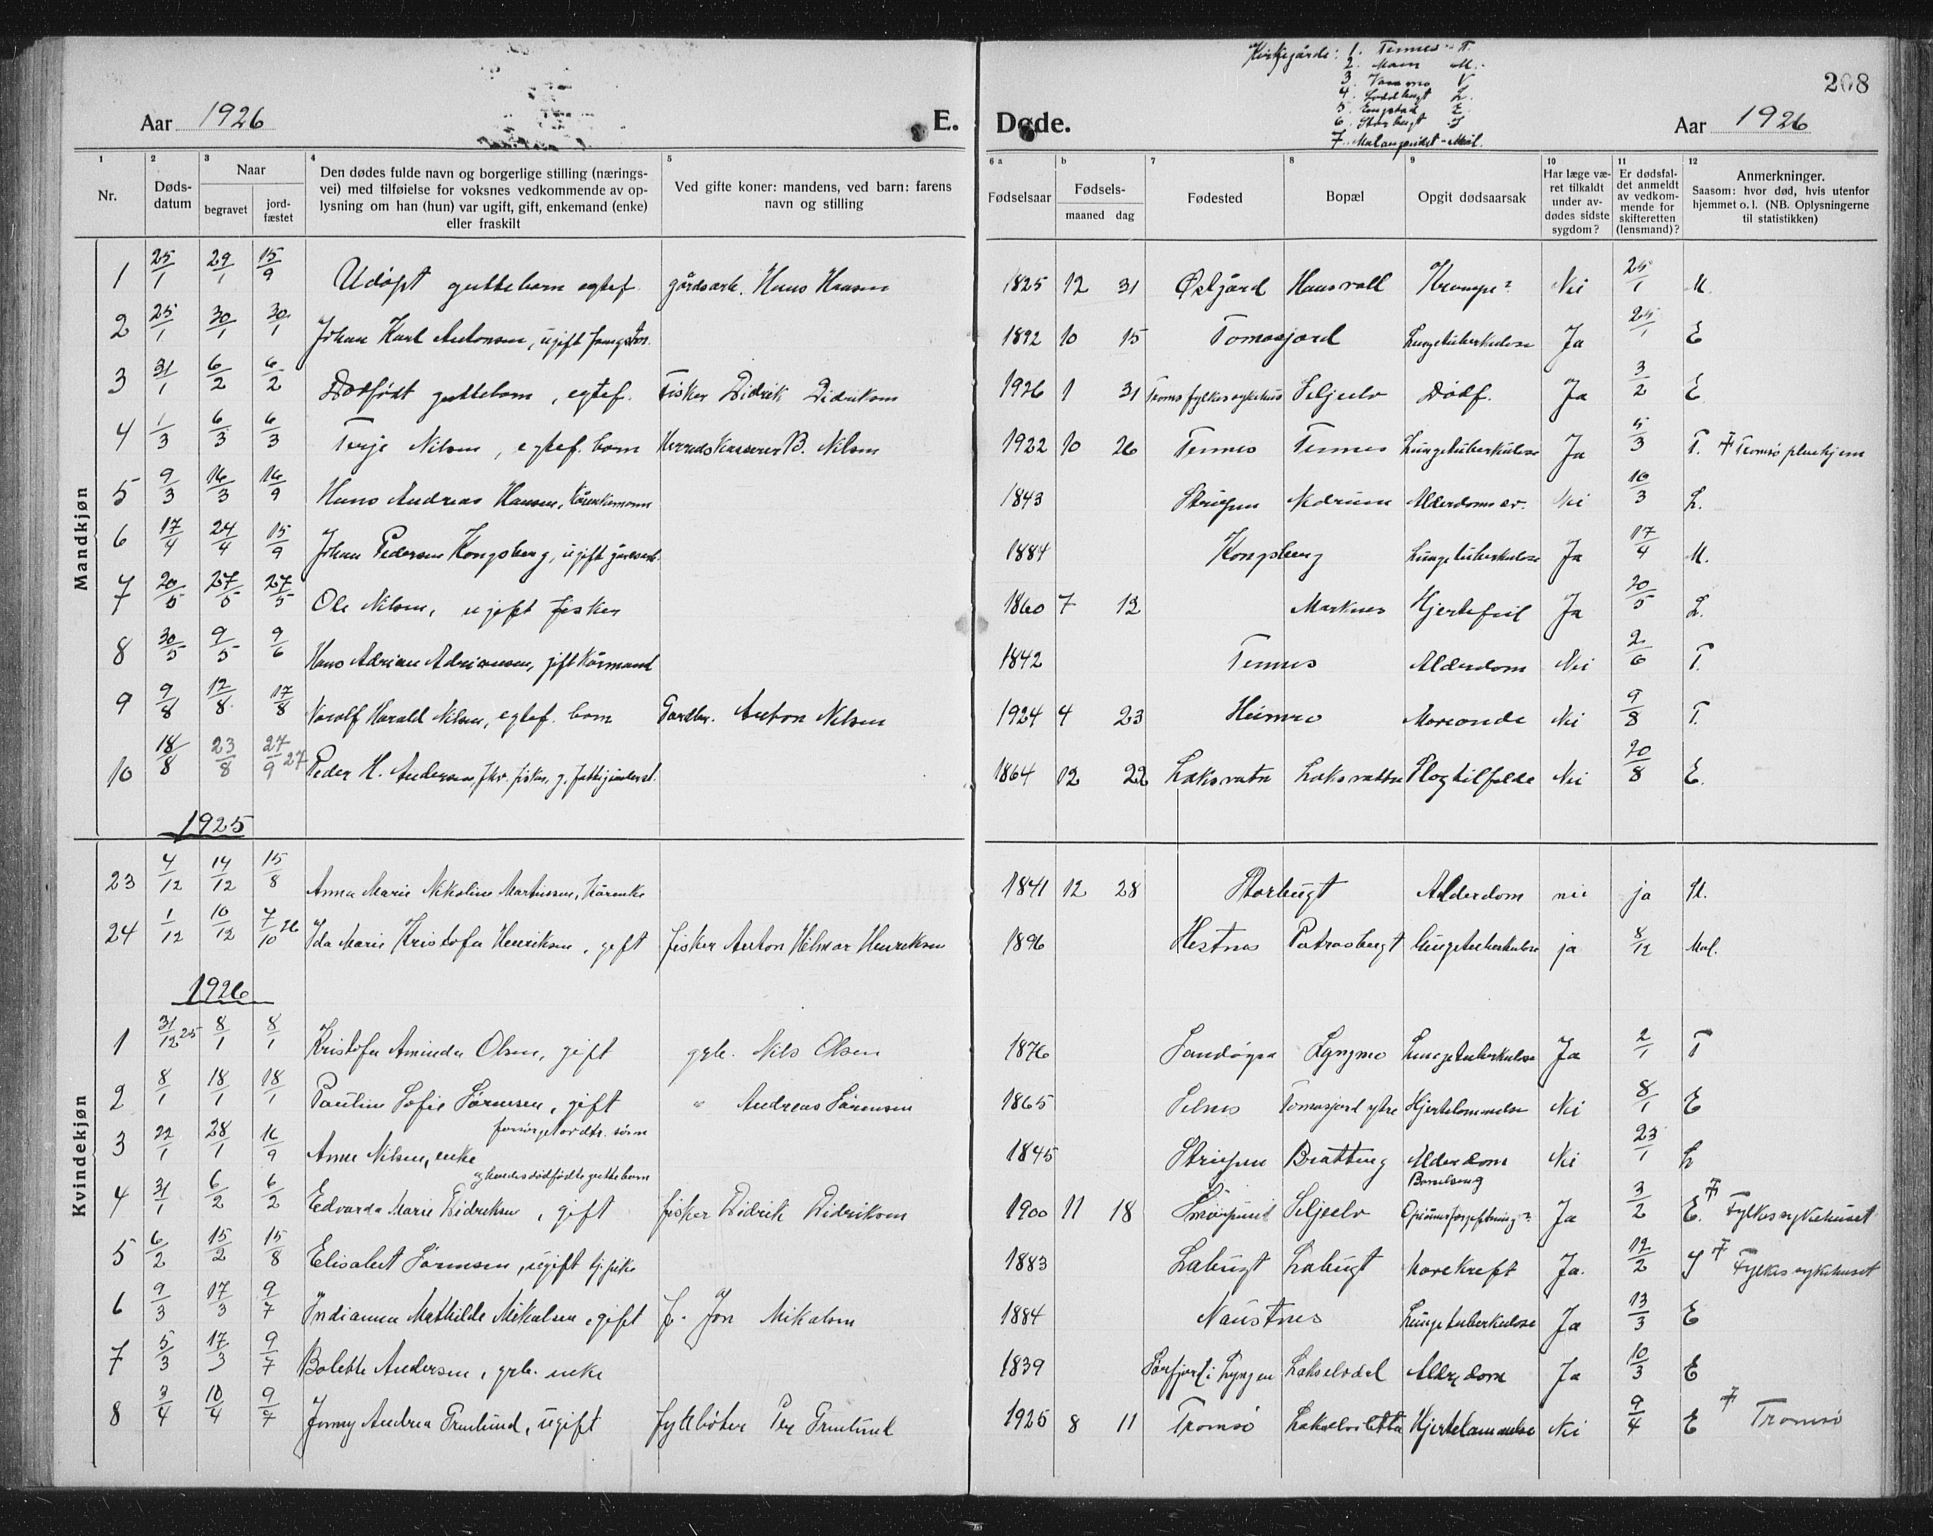 Kirkegårde: 1. Tennes - T.
2. Moen M.
3. V
4. Loddbugt L.
5. Engstad E
6. Storbugt S
7. Malangseidet - Mal.
208
Aar 1926 E. Døde. Aar 1926
1 2 3 4 5 6 a b 7 8 9 10 11 12
Nr. Døds-datum Naar begravet jord-fæstet
Den dødes fulde navn og borgerlige stilling (nærings-
vei) med tilføielse for voksnes vedkommende av op-
lysning om han (hun) var ugift, gift, enkemand (enke)
eller fraskilt
Ved gifte koner: mandens, ved barn: farens
navn og stilling
Fødselsaar Fødsels- maaned dag Fødested Bopæl Opgit dødsaarsak
Har læge væ-
ret tilkaldt
under av-
dødes sidste
sygdom?
Er dødsfal-
det anmeldt
av vedkom-
mende for
skifteretten
(lensmand)?
Anmerkninger.
Saasom: hvor død, hvis utenfor
hjemmet o. l. (NB. Oplysningerne
til statistikken)
Mandkjøn
1 25/1 29/1 15/9 Udøpt guttebarn egtef. gårdsarb. Hans Hansen 1825 12 31 Østgård Hansvoll Krampe? Nei 25/1 M.
2 25/1 30/1 30/1 Johan Karl Antonsen, ugift 1892 10 15 Tomasjord Lungetuberkulose Ja 25/1 E
3 31/1 6/2 6/2 Dødfødt guttebarn, egtef. Fisker Didrik Didriksen 1926 1 31 Troms fylkessykehus Seljeelv Dødf. Ja 3/2 E
4 1/3 6/3 6/3 Terje Nilsen, egtef. barn Herredskasserer B. Nilsen 1922 10 26 Tennes Tennes Lungetuberkulose Ja 5/3 T. Tromsø pleiehjem
5 9/3 16/3 16/9 Hans Andreas Hansen, kårenkemann 1843 Strupen Aldersdomssv. Nei 10/3 L.
6 17/4 24/4 15/9 Johan Pedersen Kongsberg, ugift gårdsarb. 1884 Kongsberg Lungetuberkulose Ja 17/4 M.
7 20/5 27/5 27/5 Ole Nilsen, ugift fisker 1860 7 12 Marknes Hjertefeil Ja 20/5 L.
8 30/5 9/5 9/6 Hans Adrian Adriansen, gift kårmand 1842 Tennes Alderdom Nei 2/6 T.
9 9/8 12/8 17/8 Harald Nilsen, egtef. barn Gardbr. Anton Nilsen 1924 4 23 Heimro Nei 9/8 T.
10 18/8 23/8 27/9 27 Peder H. Andersen, fhv. fisker, g. fattigunderst. 1864 12 22 Laksvatn Laksvattn Slagtilfelde Nei 20/8 E.
1925
Kvindekjøn
23 4/12 14/12 15/8 Anna Marie Nikoline Martinssen, kårenke 1841 12 28 Storbugt Alderdom nei ja
24 1/12 10/12 7/10 26 Ida Marie Kristofa Henriksen, gift fisker Anton Helmar Henriksen 1896 Hestnes Lungetuberkulose ja 8/12 Mal.
1926
1 31/12 25 8/1 8/1 Kristofa Aminda Olsen, gift grb. Nils Olsen 1876 Sandøyra Lyngmo Lungetuberkulose Ja 2/1 T
2 8/1 18/1 18/1 Pauline Sofie Sørensen, gift " Andreas Sørensen 1865 Selnes Tomasjord ytre Hjertelammelse Nei 8/1 E
3 22/1 28/1 16/9 Anne Nilsen, enke forsørget ordtr. sønn 1845 Strupen Bratteng Alderdom Nei 23/1 L
4 31/1 6/2 6/2 Edvarda Marie Didriksen, gift og hendes dødfødte guttebarn fisker Didrik Didriksen 1900 11 18 Seljeelv Barselseng Opiumsforgiftning? Ja 3/2 E. Fylkessykehuset
5 6/2 15/2 15/8 Elisabet Sørensen, ugift tj.pike 1883 Labugt Labugt Ja. 12/2 S Fylkessykehuset
6 9/3 17/3 9/7 Indianna Mathilde Mikalsen, gift f. Jon Mikalsen 1884 Naustnes Lungetuberkulose Ja 13/3 E
7 5/3 17/3 9/7 Bolette Andersen, grb. enke 1839 Sørfjord i Lyngen Lakselvdal Alderdom Ja 10/3 E
8 3/4 10/4 9/7 Jenny Andrea Grenlund, ugift Per Grenlund 1925 8 11 Tromsø Lakselvsletta Hjertelammelse Nei 9/4 E Tromsø